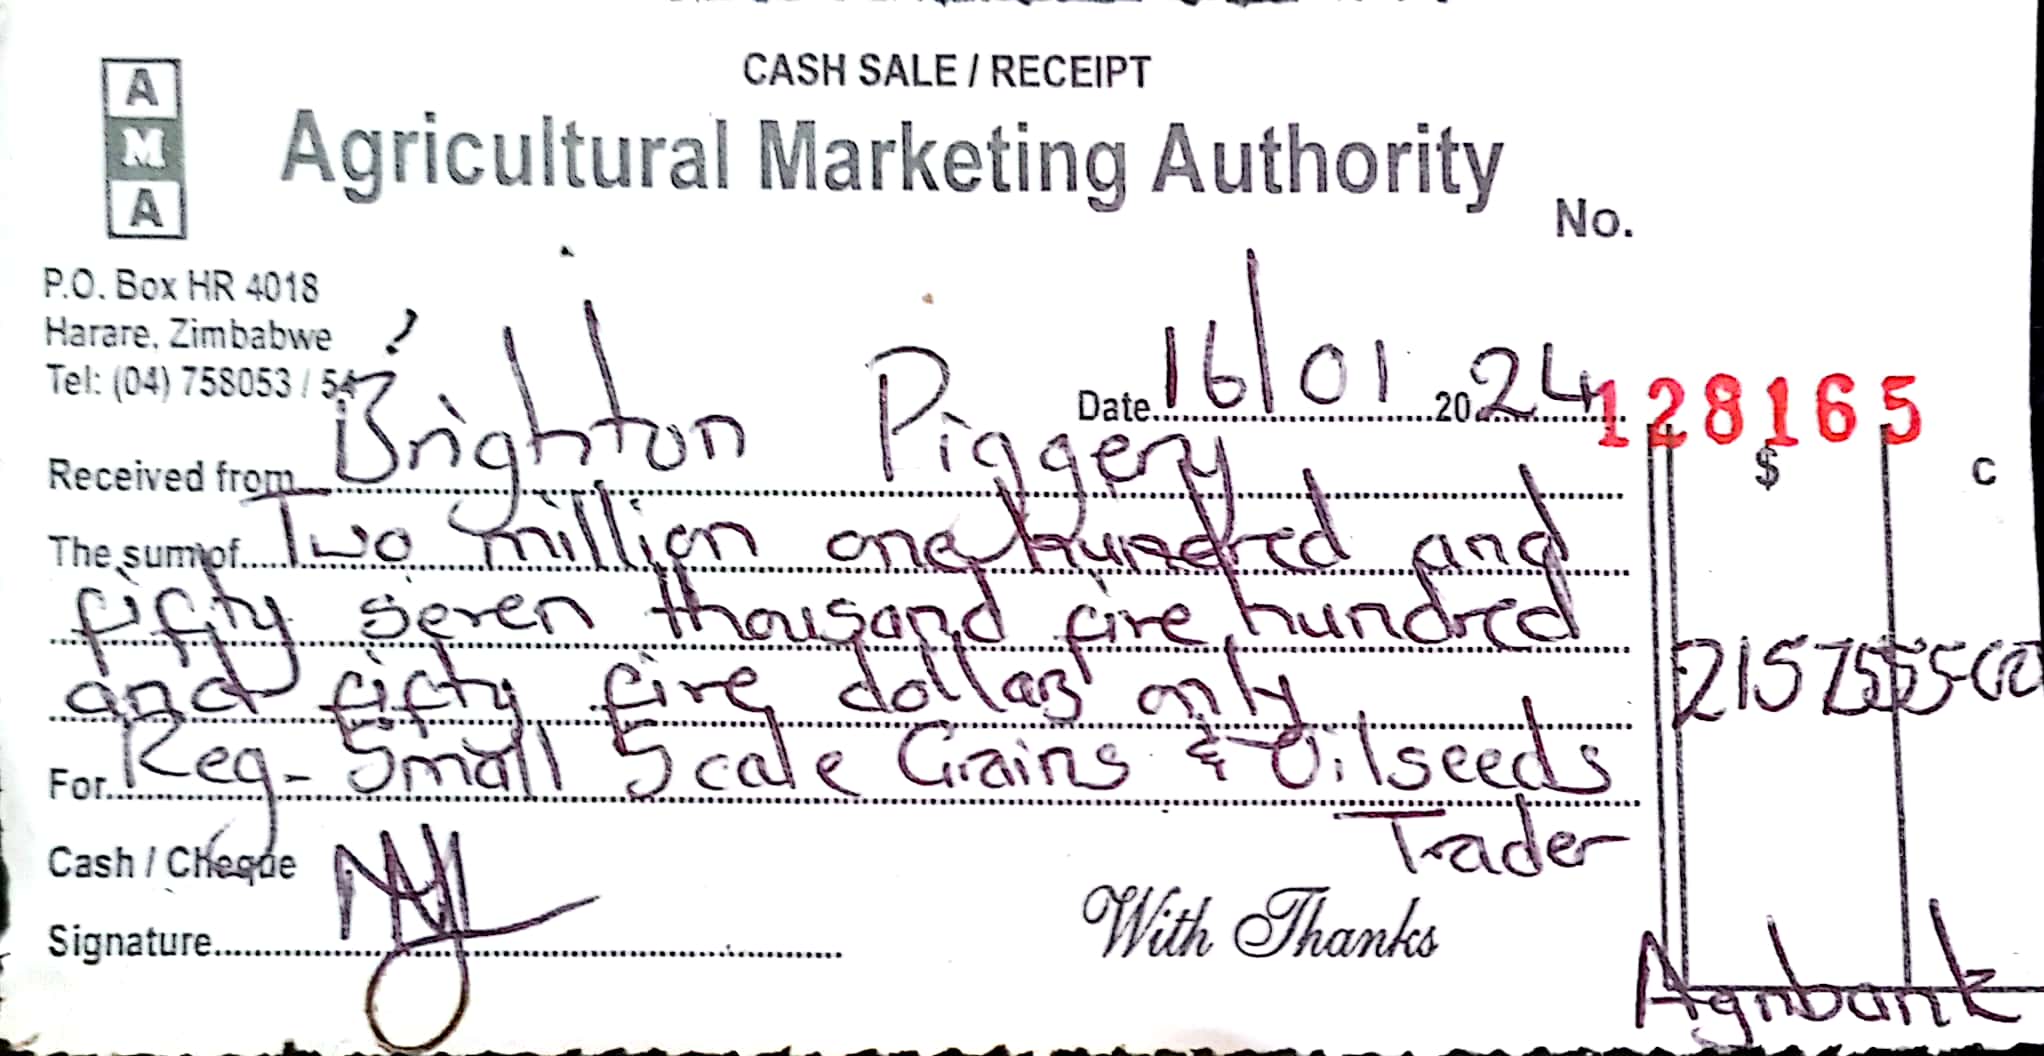 CASH SALE / RECEIPT
A
M
A
Agricultural Marketing Authority
No.
128165
P.O. Box HR 4018
Harare, Zimbabwe
Tel: (04) 758053 / 54
Date 16/01 2024
$ c
Received from Brighton Piggery
The sum of Two million one hundred and
fifty seven thousand five hundred
and fifty five dollars only
2157555-00
For Reg- Small Scale Grains & Oilseeds
Trader
Cash / Cheque
Signature
With Thanks
Agribank